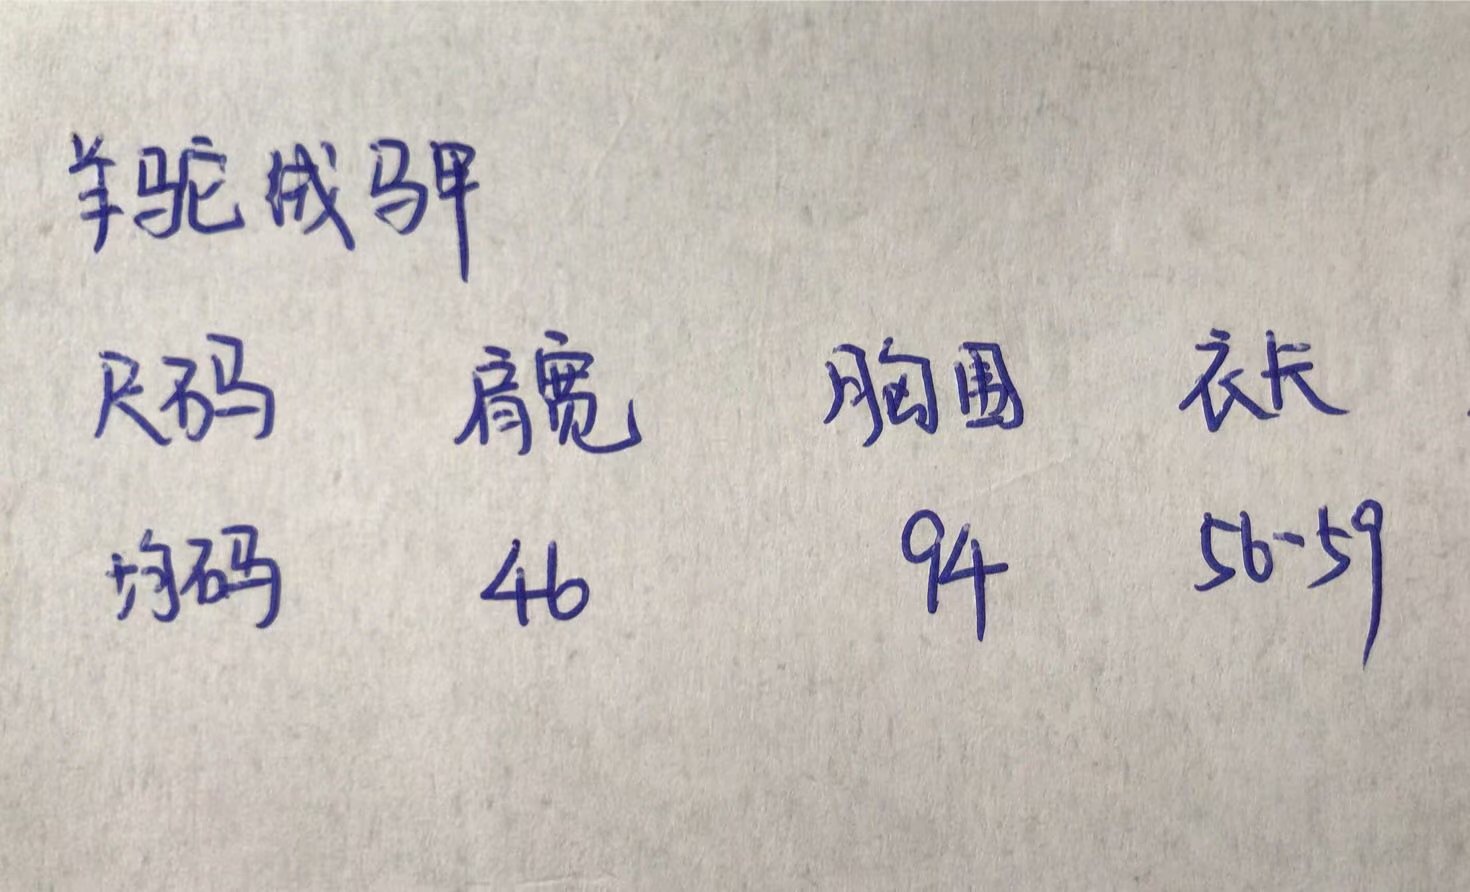 羊驼绒马甲
尺码 肩宽 胸围 衣长
均码 46 94 56-59